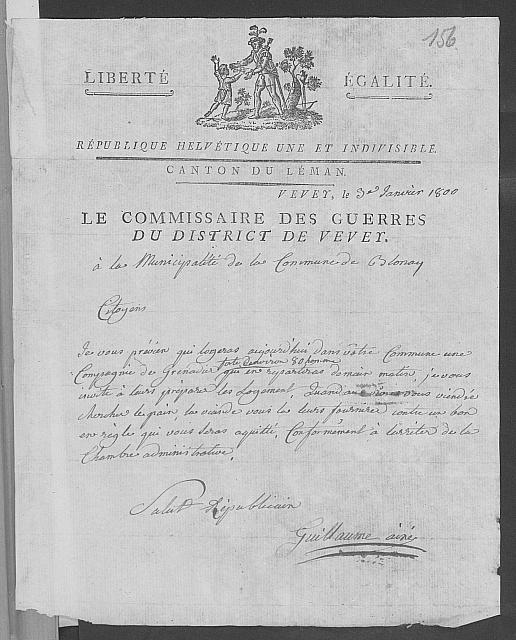 156
LIBERTÉ ÉGALITÉ.
RÉPUBLIQUE HELVÉTIQUE UNE ET INDIVISIBLE.
CANTON DU LÉMAN.
VEVEY, le 3e Janvier 1800
LE COMMISSAIRE DES GUERRES
DU DISTRICT DE VEVEY.
à la Municipalité de la Commune de Blonay
Citoyens
Je vous prévien qui logeras aujourd'hui dans vôtre Commune une
fate denviron 80 homme
Compagnie de Grenadier qui en repartiras demain matin, je vous
invite à leurs prépare les logement. Quand au vous viendré
chercher le pain, la viande vous la leurs fournirer contre un bon
en règles qui vous seras aquitté, Conformément à l'arrêter de la
Chambre administrative.
Salut Républicain
Guillaume ainé